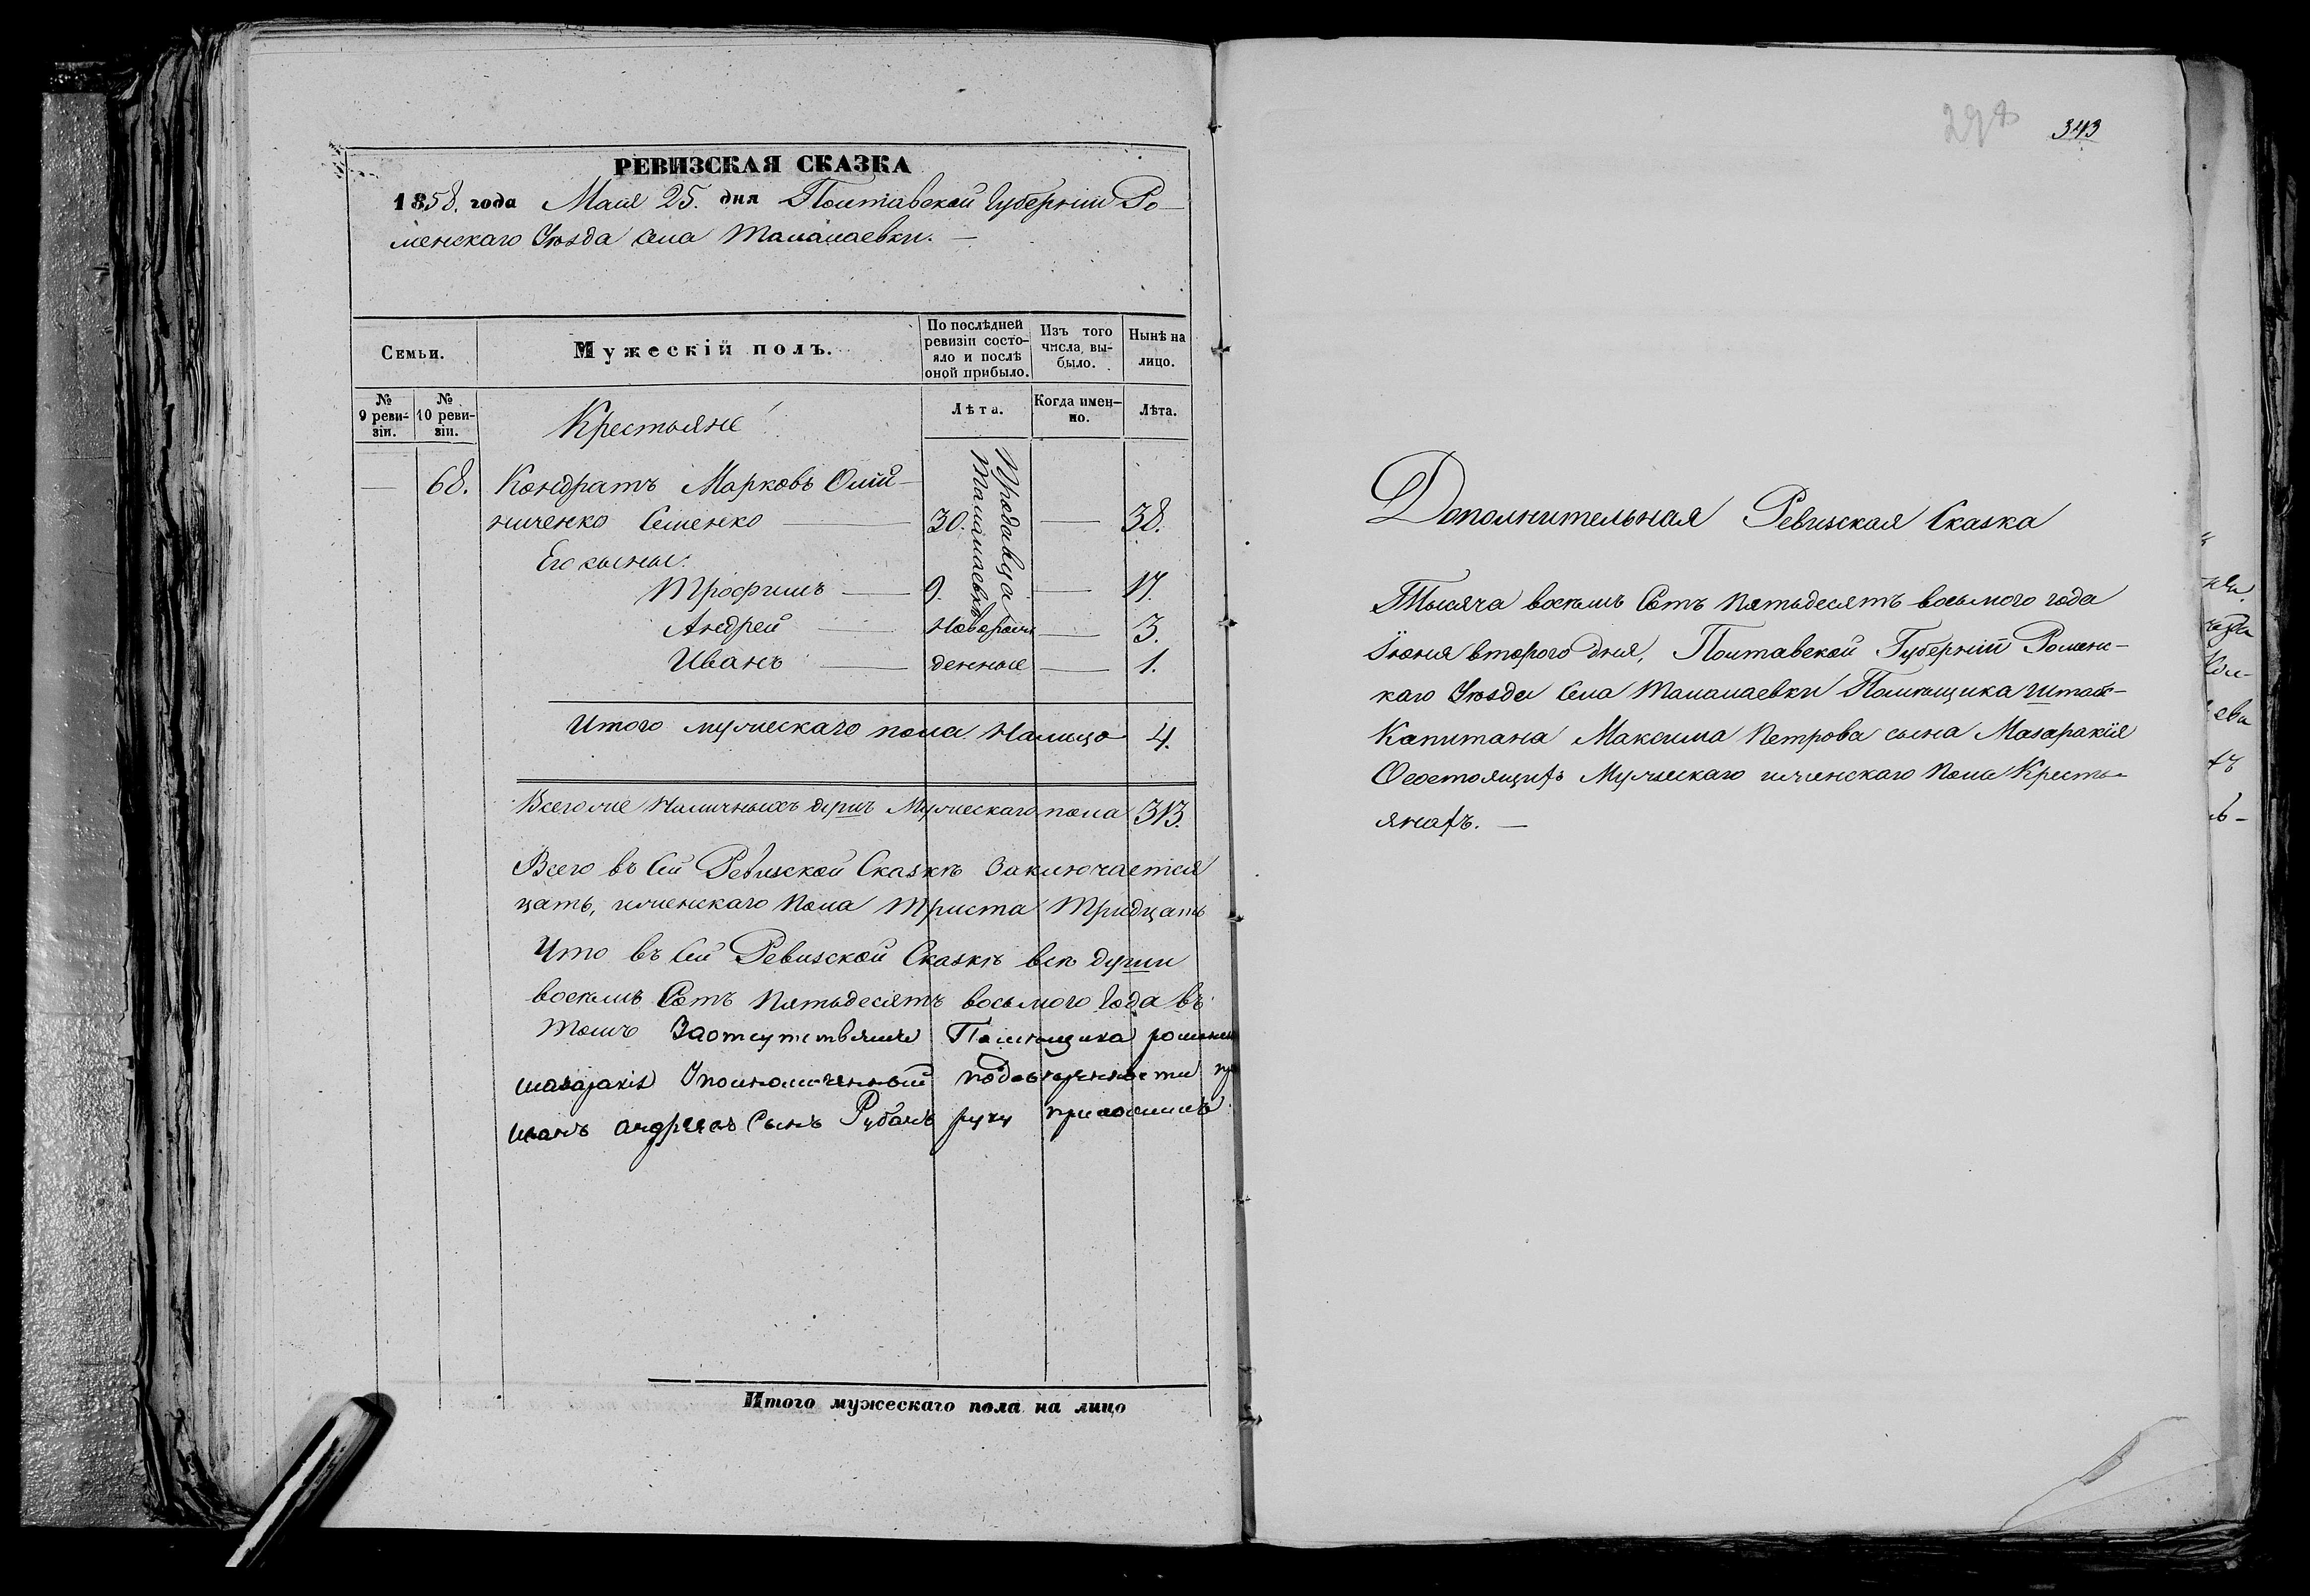 РЕВИЗСКАЯ СКАЗКА
1858. года Мая 25. дня Полтавской Губерніи Ро-
менскаго Уѣзда Села Талалаевки. —
Семьи.
Мужескій полъ.
По послѣдней ревизіи состояло и послѣ оной прибыло.
Изъ того числа выбыло.
Нынѣ на лицо.
№ 9 ревизіи.
№ 10 ревизіи.
Крестьяне
Лѣта.
Когда именно.
Лѣта.
— 68. Кондратъ Марковъ Олій-
ниченко Семенко — 30. — 38.
Его сыны:
Трофимъ — 9. — 17.
Андрей — Новорож — 3.
Иванъ — денные — 1.
Продавца
Талалаевкѣ
Итого мужескаго пола налицо 4.
Всего же Наличныхъ душъ Мужескаго пола 313.
Всего въ Сей Ревизской Сказкѣ Заключается
цать, и женскаго пола Триста Тридцать
Что въ Сей Ревизской Сказкѣ всѣ души
восемь Сотъ пятьдесятъ восьмого Года въ
томъ За отсутствіемъ Помѣщика
Мазаракія Уполномоченный по довѣренности
Иванъ Андреевъ Сынъ Рубанъ руку приложилъ
Итого мужескаго пола на лицо
343
Дополнительная Ревизская Сказка
Тысяча восемь Сотъ пятьдесятъ восьмого года
Іюня второго дня, Полтавской Губерніи Роменс-
каго Уѣзда Села Талалаевки Помѣщика Штабс-
Капитана Максима Петрова сына Мазаракія
О состоящихъ Мужескаго и женскаго пола Кресть-
янахъ. —